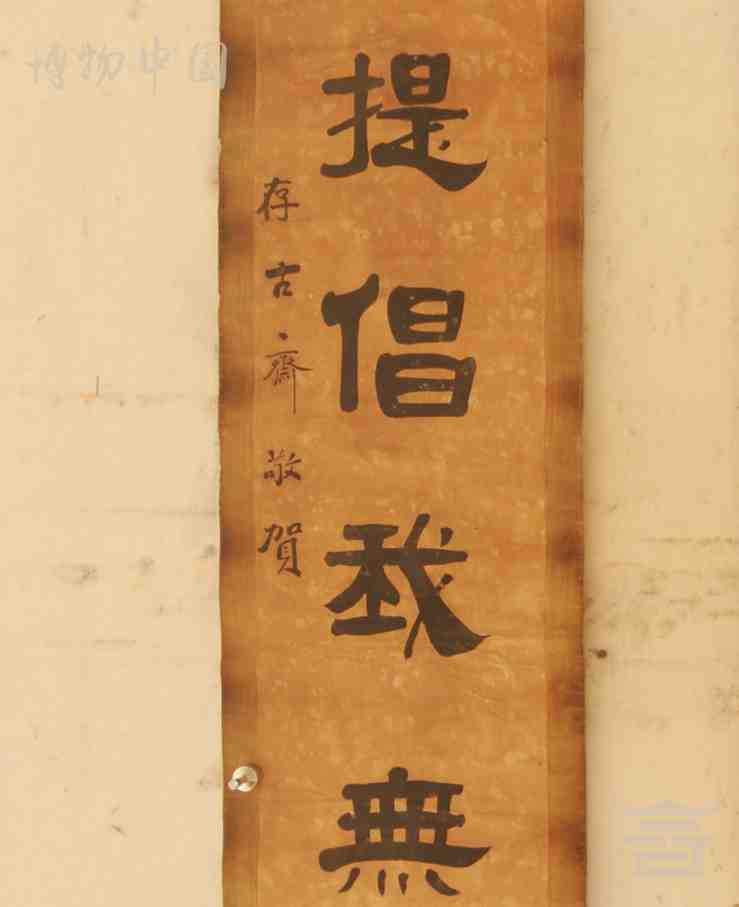 博物中国
提倡我無
存古齋敬賀